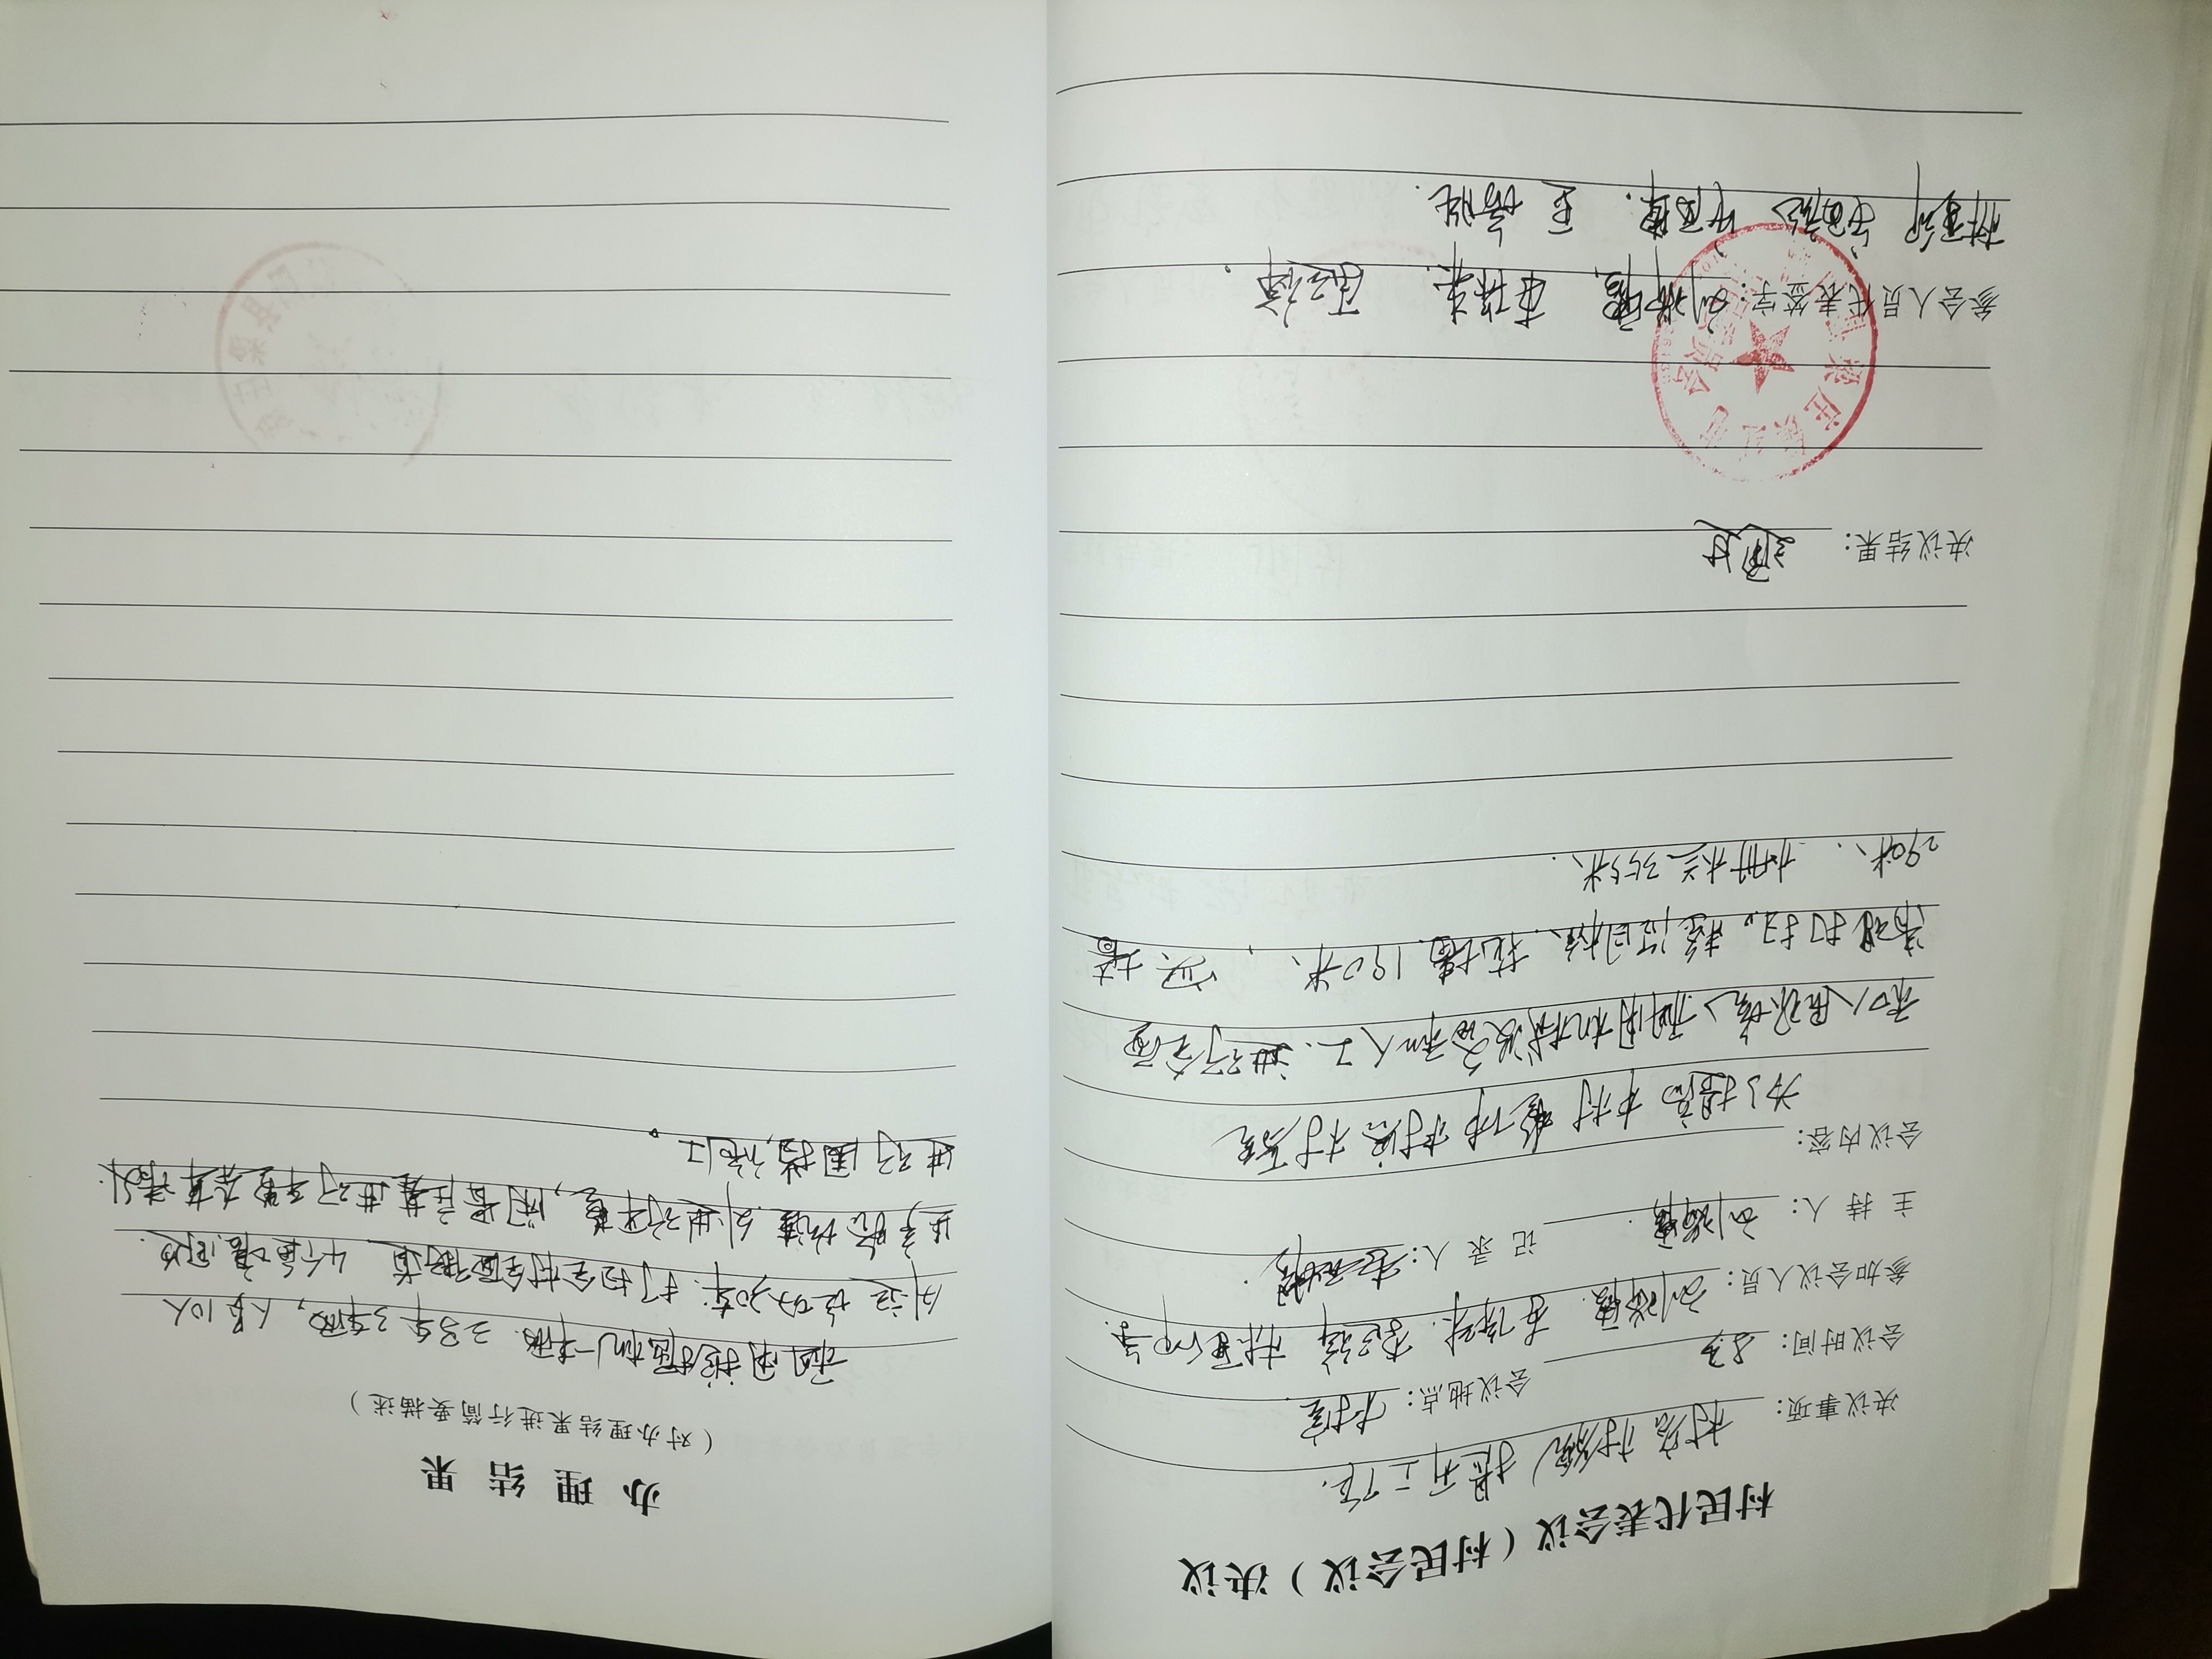 村民代表会议（村民会议）决议
决议事项：村容村貌提升工作.
会议时间：
会议地点：村室.
参加会议人员：刘瑞霞. 李保来. 李运祥 林重印等.
主持人：刘瑞霞.
记录人：李
会议内容：
为了提高本村整体村容村貌
和人居环境、租用机械设备和人工、进行全面
清理打扫。整治目标、花墙、190米、, 实墙
290米、. 栅栏355米.
决议结果：通过
参会人员代表签字：刘瑞霞、李保来. 李运祥.
林重印
办理结果
（对办理结果进行简要描述）
租用挖掘机一车辆. 三马车3车辆，人员10人
外运垃圾30车. 打扫全村全面街道 4个鱼塘、周边.
生产路坑洼. 处进行平整，闲置庄基进行平整杂草清处
进行围挡，施工。